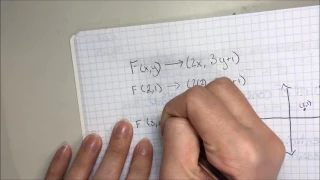 F(x,y) → (2x, 3y+1)
F(2,1) → (2(2),
F(0,
(2,1)